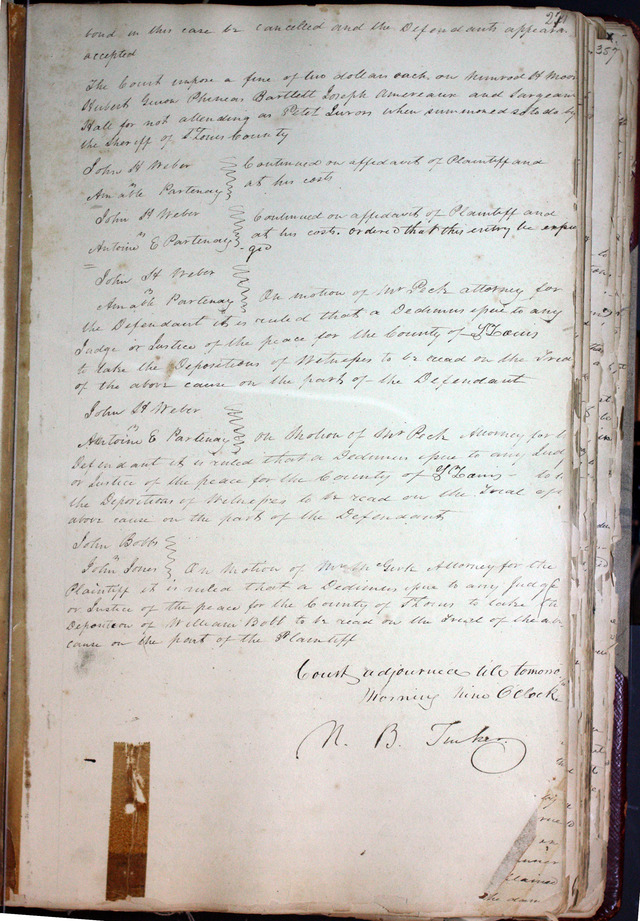 bond in this case be cancelled and the Defendants appeara
accepted
The Court impose a fine of two dollars each on Nimrod H Moor
Hubert Phineas Bartlett Joseph and
Hall for not attending as Petit Jurors when summoned so to do by
the Sheriff of St Louis County
John H Weber
vs
Amable Partenay
Continued on affidavit of Plaintiff and
at his costs
John H Weber
vs
Antoine E Partenay
Continued on affidavit of Plaintiff and
at his costs. ordered that this entry be expun
ged
John H Weber
vs
Amable Partenay On motion of Mr Peck attorney for
the Defendant it is ruled that a Dedimus issue to any
Judge or Justice of the peace for the County of St Louis
to take the Depositions of Witnesses to be read on the Trial
of the above cause on the part of the Defendant
John H Weber
vs
Antoine E Partenay On Motion of Mr Peck Attorney for
Defendant it is ruled that a Dedimus issue to any Jud
or Justice of the peace for the County of St Louis to
the Depositions of Witnesses to be read on the Trial of
above cause on the part of the Defendant
John Bobb
vs
John Jones On Motion of Attorney for the
Plaintiff it is ruled that a Dedimus issue to any Judge
or Justice of the peace for the County of St Louis to take
Deposition of William Bobb to be read on the Trial of the ab
cause on the part of the Plaintiff
Court adjourned till tomorro
Morning Nine OClock
N. B. Tucker
357